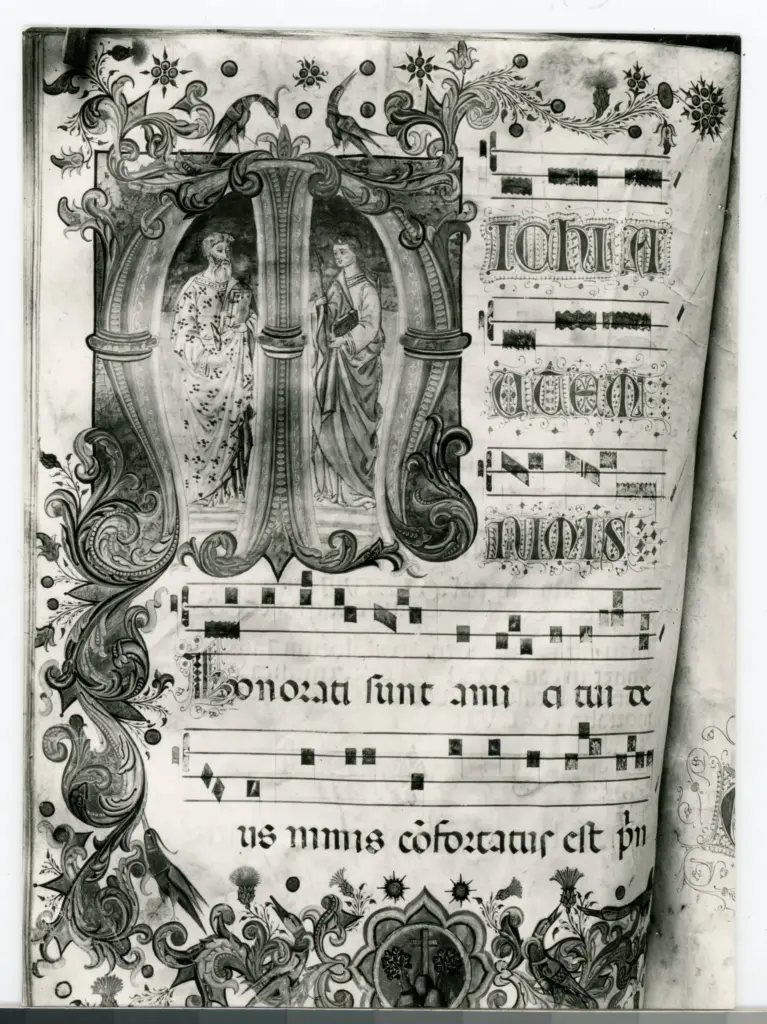 M
ICHI A
UTEM
NIMIS
Honorati sunt ami ci tui de
us nimis cōfortatus est p̄n